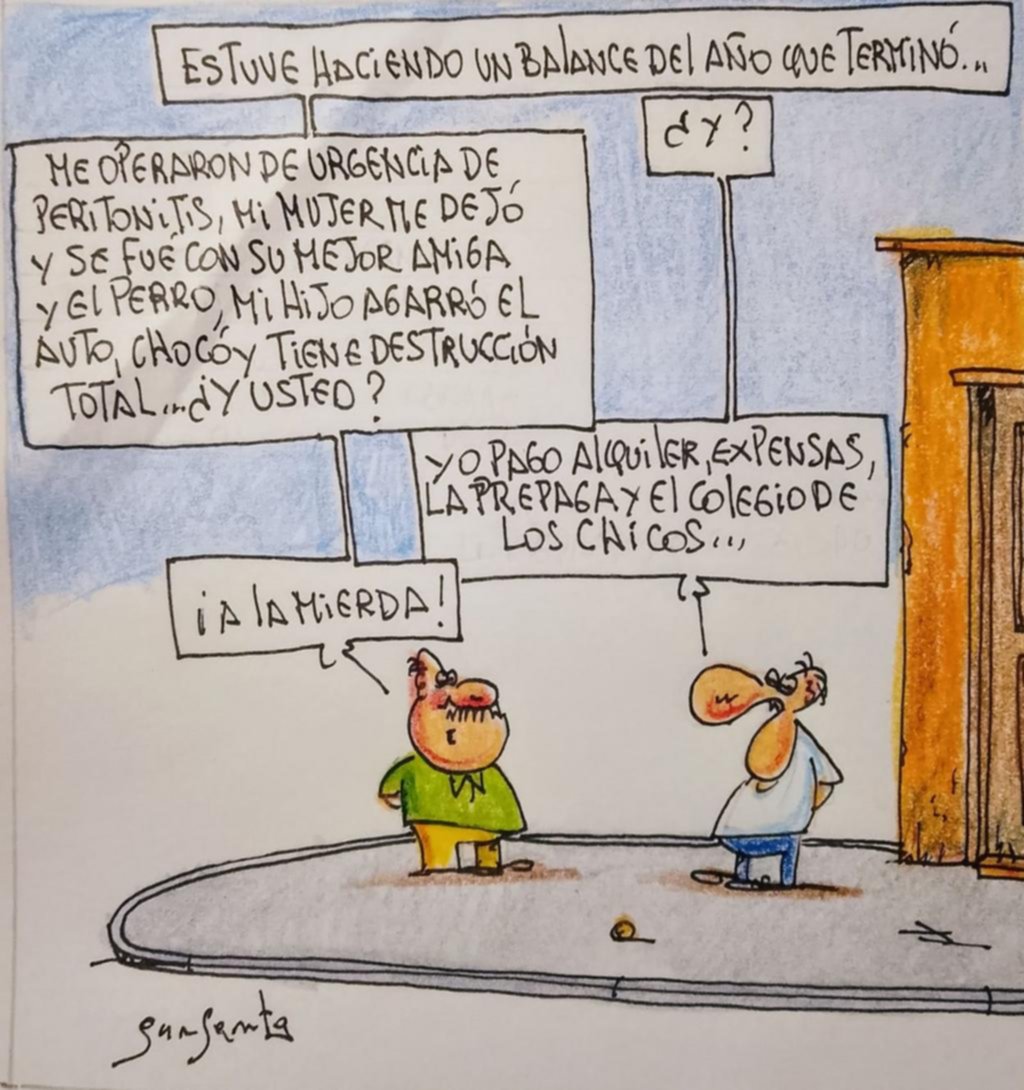 ESTUVE HACIENDO UN BALANCE DEL AÑO QUE TERMINÓ...
¿Y?
ME OPERARON DE URGENCIA DE
PERITONITIS, MI MUJER ME DEJÓ
Y SE FUÉ CON SU MEJOR AMIGA
Y EL PERRO, MI HIJO AGARRÓ EL
AUTO, CHOCÓ Y TIENE DESTRUCCIÓN
TOTAL... ¿Y USTED?
YO PAGO ALQUILER, EXPENSAS,
LA PREPAGA Y EL COLEGIO DE
LOS CHICOS...
¡A LA MIERDA!